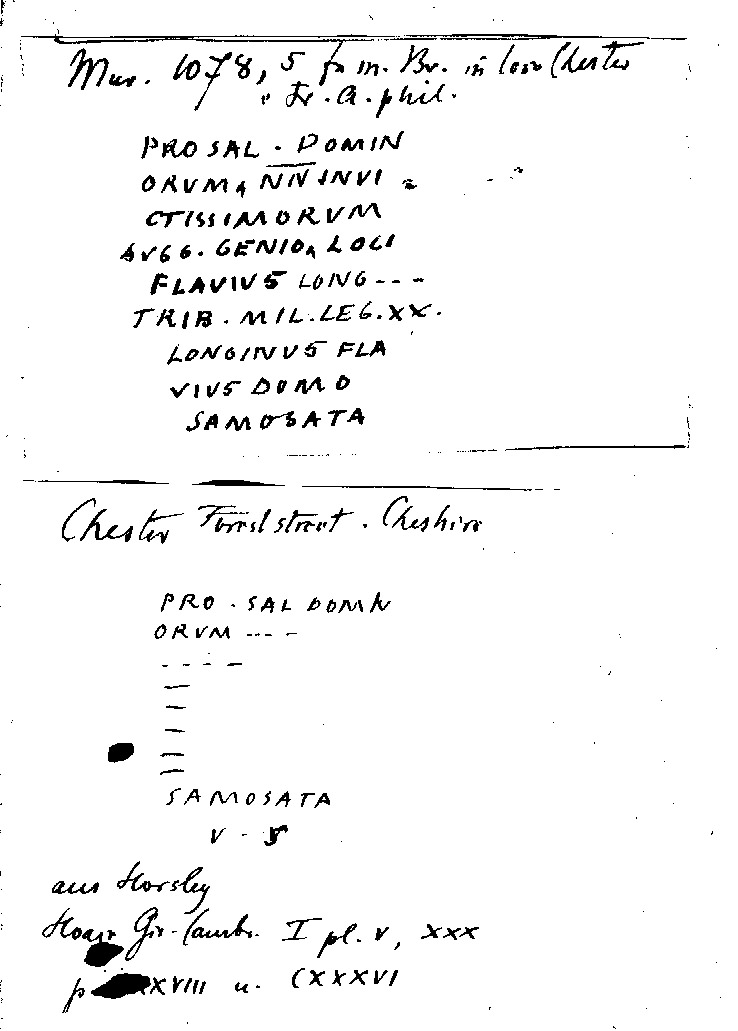 Mur. 1078, 5 fr m. Br. in loco Chester
Tr. A. phil.
PRO SAL . DOMIN
ORVM, NN INVI
CTISSIMORVM
AVGG. GENIO, LOCI
FLAVIVS LONG - - -
TRIB. MIL. LEG. XX.
LONGINVS FLA
VIVS DOMO
SAMOSATA
Chester Forest street. Cheshire
PRO . SAL DOMIN
ORVM - - - -
- - - -
—
—
—
—
—
SAMOSATA
V - S
aus Horsley
Hoare Gir. Cambr. I pl. V, XXX
p XXVIII u. CXXXVI